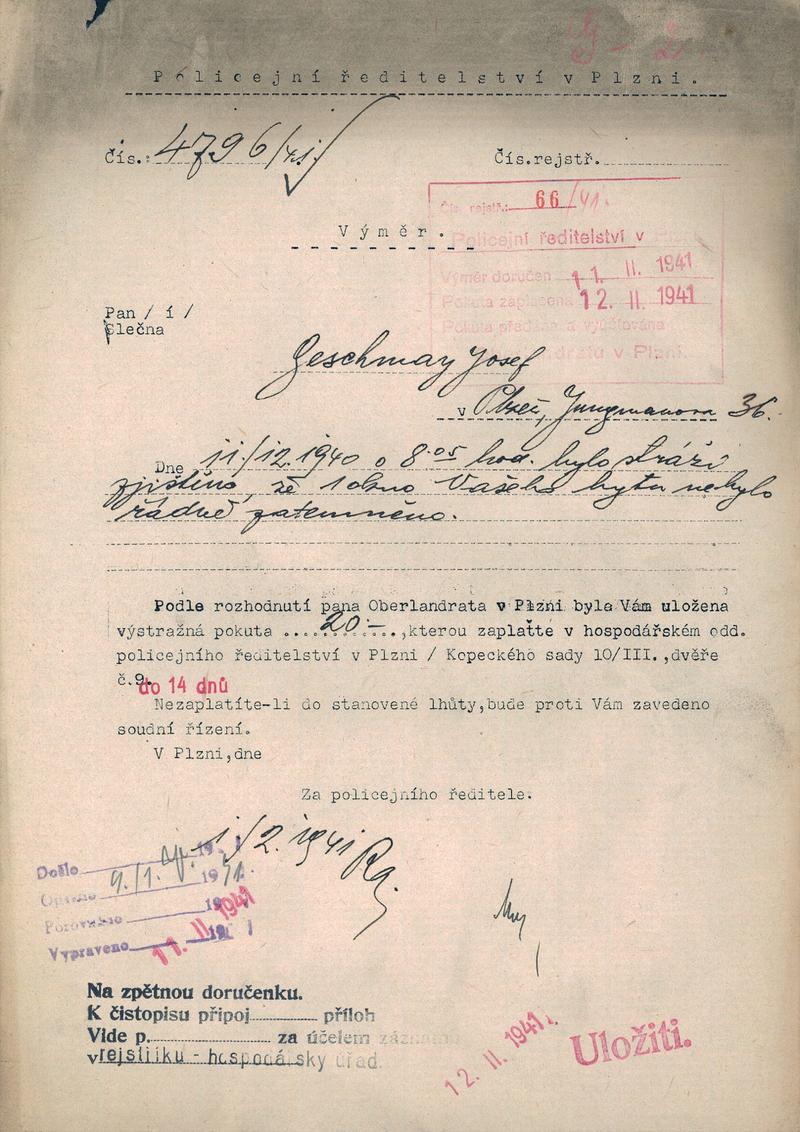 Policejní ředitelství v Plzni.
Čís.: 4796/41
Čís.rejstř.
Čís. rejstř.: 66/41.
Výměr.
Policejní ředitelství v
Výměr doručen 11. II. 1941
Pokuta zaplacena 12. II. 1941
Pokuta předána a vyúčtována
v Plzni.
Pan / í /
Slečna
Geschmay Josef
v Plzni, Jungmanova 36.
Dne 11./12.1940 o 8.05 hod. bylo stráží
zjištěno, že 1 okno Vašeho bytu nebylo
řádně zatemněno.
Podle rozhodnutí pana Oberlandrata v Plzni byla Vám uložena
výstražná pokuta 20.- ,kterou zaplaťte v hospodářském odd.
policejního ředitelství v Plzni / Kopeckého sady 10/III.,dvéře
č.9.
do 14 dnů
Nezaplatíte-li do stanovené lhůty,bude proti Vám zavedeno
soudní řízení.
V Plzni,dne
Za policejního ředitele.
1/2. 1941
Došlo 19
Opsáno 9./1. 1941
Porovnáno 19
Vypraveno 11. II. 1941
Na zpětnou doručenku.
K čistopisu připoj příloh
Vide p. za účelem
v rejstříku - hospodářský úřad.
12. II. 1941.
Uložiti.